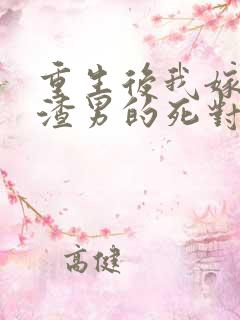 重生後我嫁
渣男的死對
高健